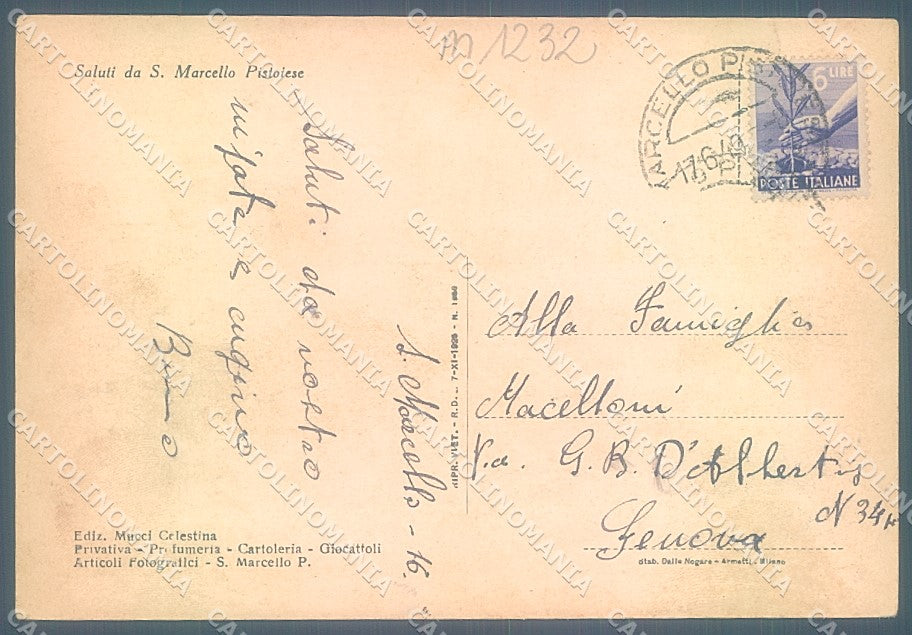 m 1232
Saluti da S. Marcello Pistoiese
MARCELLO PIS
17.6.49
6 LIRE
POSTE ITALIANE
S. Marcello - 16.
Saluti da vostro
nipote e cugino
Bruno
RIPR. VIET. - R.D. 7-XI-1925 - N. 1950
Alla Famiglia
Macelloni
Via. G. B. D'Albertis
N 34
Genova
Ediz. Mucci Celestina
Privativa - Profumeria - Cartoleria - Giocattoli
Articoli Fotografici - S. Marcello P.
Stab. Dalle Nogare - Armetti - Milano
CARTOLINOMANIA